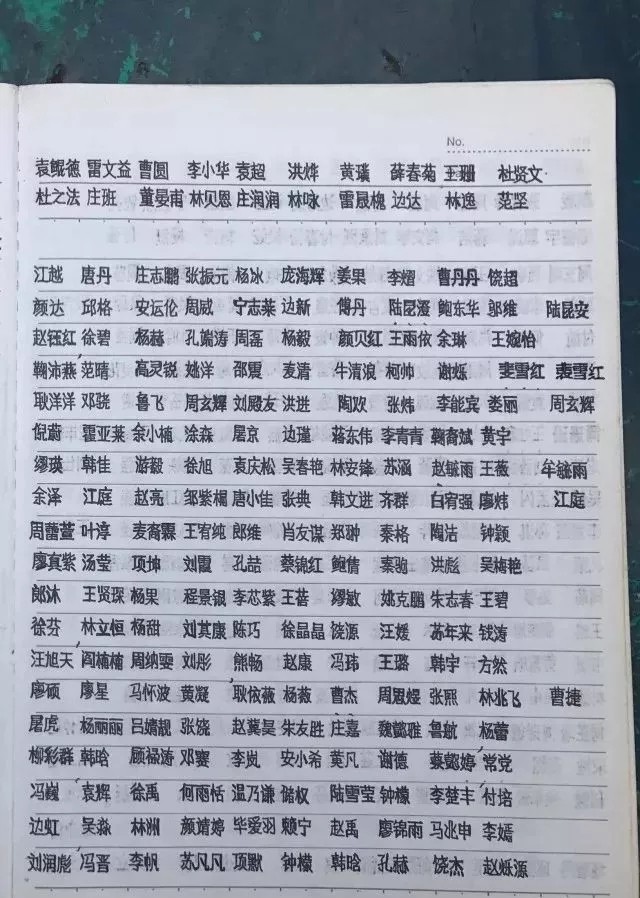 No.
袁鲲德 雷文益 曹圆 李小华 袁超 洪烨 黄璞 薛春菊 王珊 杜贤文
杜之法 庄班 董晏甫 林贝恩 庄润润 林咏 雷晟槐 边达 林逸 范坚
江越 唐丹 庄志鹏 张振元 杨冰 庞海辉 姜果 李熠 曹丹丹 饶超
颜达 邱格 安运伦 周威 宁志莱 边新 傅丹 陆昆澄 鲍东华 邬维 陆昆安
赵钰红 徐碧 杨赫 孔媏涛 周磊 杨毅 颜贝红 王雨依 余琳 王婉怡
鞠沛燕 范晴 高灵锐 姚洋 邵震 麦清 牛清浪 柯帅 谢烁 裴雪红 裴雪红
耿洋洋 邓骁 鲁飞 周玄辉 刘殿友 洪进 陶欢 张炜 李能宾 娄丽 周玄辉
倪蔚 霍亚莱 余小楠 涂森 屠京 边瑾 蒋东伟 李青青 鞠斋斌 黄宇
缪瑛 韩佳 游毅 徐旭 袁庆松 吴春艳 林安锋 苏涵 赵毓雨 王薇 牟毓雨
余泽 江庭 赵亮 邹紫榈 唐小佳 张典 韩文进 齐群 白宥强 廖炜 江庭
周蕾萱 叶淳 麦裔霖 王宥纯 郎维 肖友谋 郑翀 秦格 陶洁 钟颖
廖真紫 汤莹 项坤 刘霞 孔喆 蔡锦红 鲍倩 秦驰 洪彪 吴梅艳
郎沐 王贤琛 杨果 程景银 李芯紫 王萻 缪敏 姚克鹏 朱志春 王碧
徐芬 林立恒 杨甜 刘其康 陈巧 徐晶晶 饶源 汪媛 苏年来 钱涛
汪旭天 阎楠楠 周纳雯 刘彤 熊畅 赵康 冯玮 王璐 韩宇 方然
廖硕 廖星 马怀波 黄凝 耿依薇 杨薇 曹杰 周思煜 张熙 林兆飞 曹捷
屠虎 杨丽丽 吕嬉靓 张饶 赵冀昊 朱友胜 庄嘉 魏懿雅 鲁航 杨蕾
柳彩群 韩晗 顾禄涛 邓霙 李岚 安小希 黄凡 谢德 蔡懿婷 常党
冯巍 袁辉 徐禹 何雨恬 温乃谦 储权 陆雪莹 钟檬 李楚丰 付培
边虹 吴淼 林洲 颜靖婷 毕爱羽 赖宁 赵禹 廖锦雨 马兆申 李嫣
刘润彪 冯晋 李帆 苏凡凡 项默 钟檬 韩晗 孔赫 饶杰 赵烁源